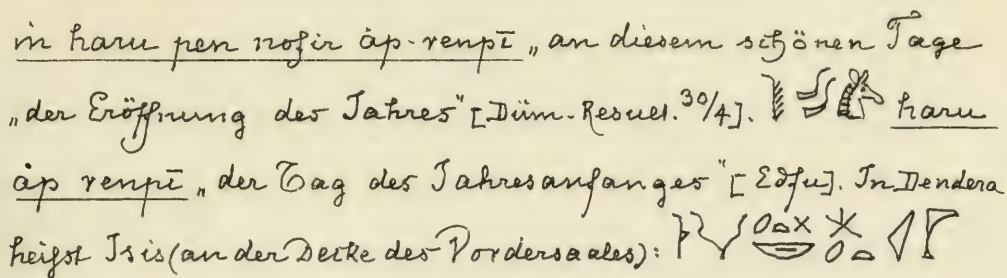 ṁ haru pen nofir áp-renpī „an diesem schönen Tage
„der Eröffnung des Jahres“ [Düm. Resuel. 30/4]. haru
áp renpī „der Tag des Jahresanfanges“ [Edfu]. In Dendera
heißt Isis (an der Decke des Vordersaales):